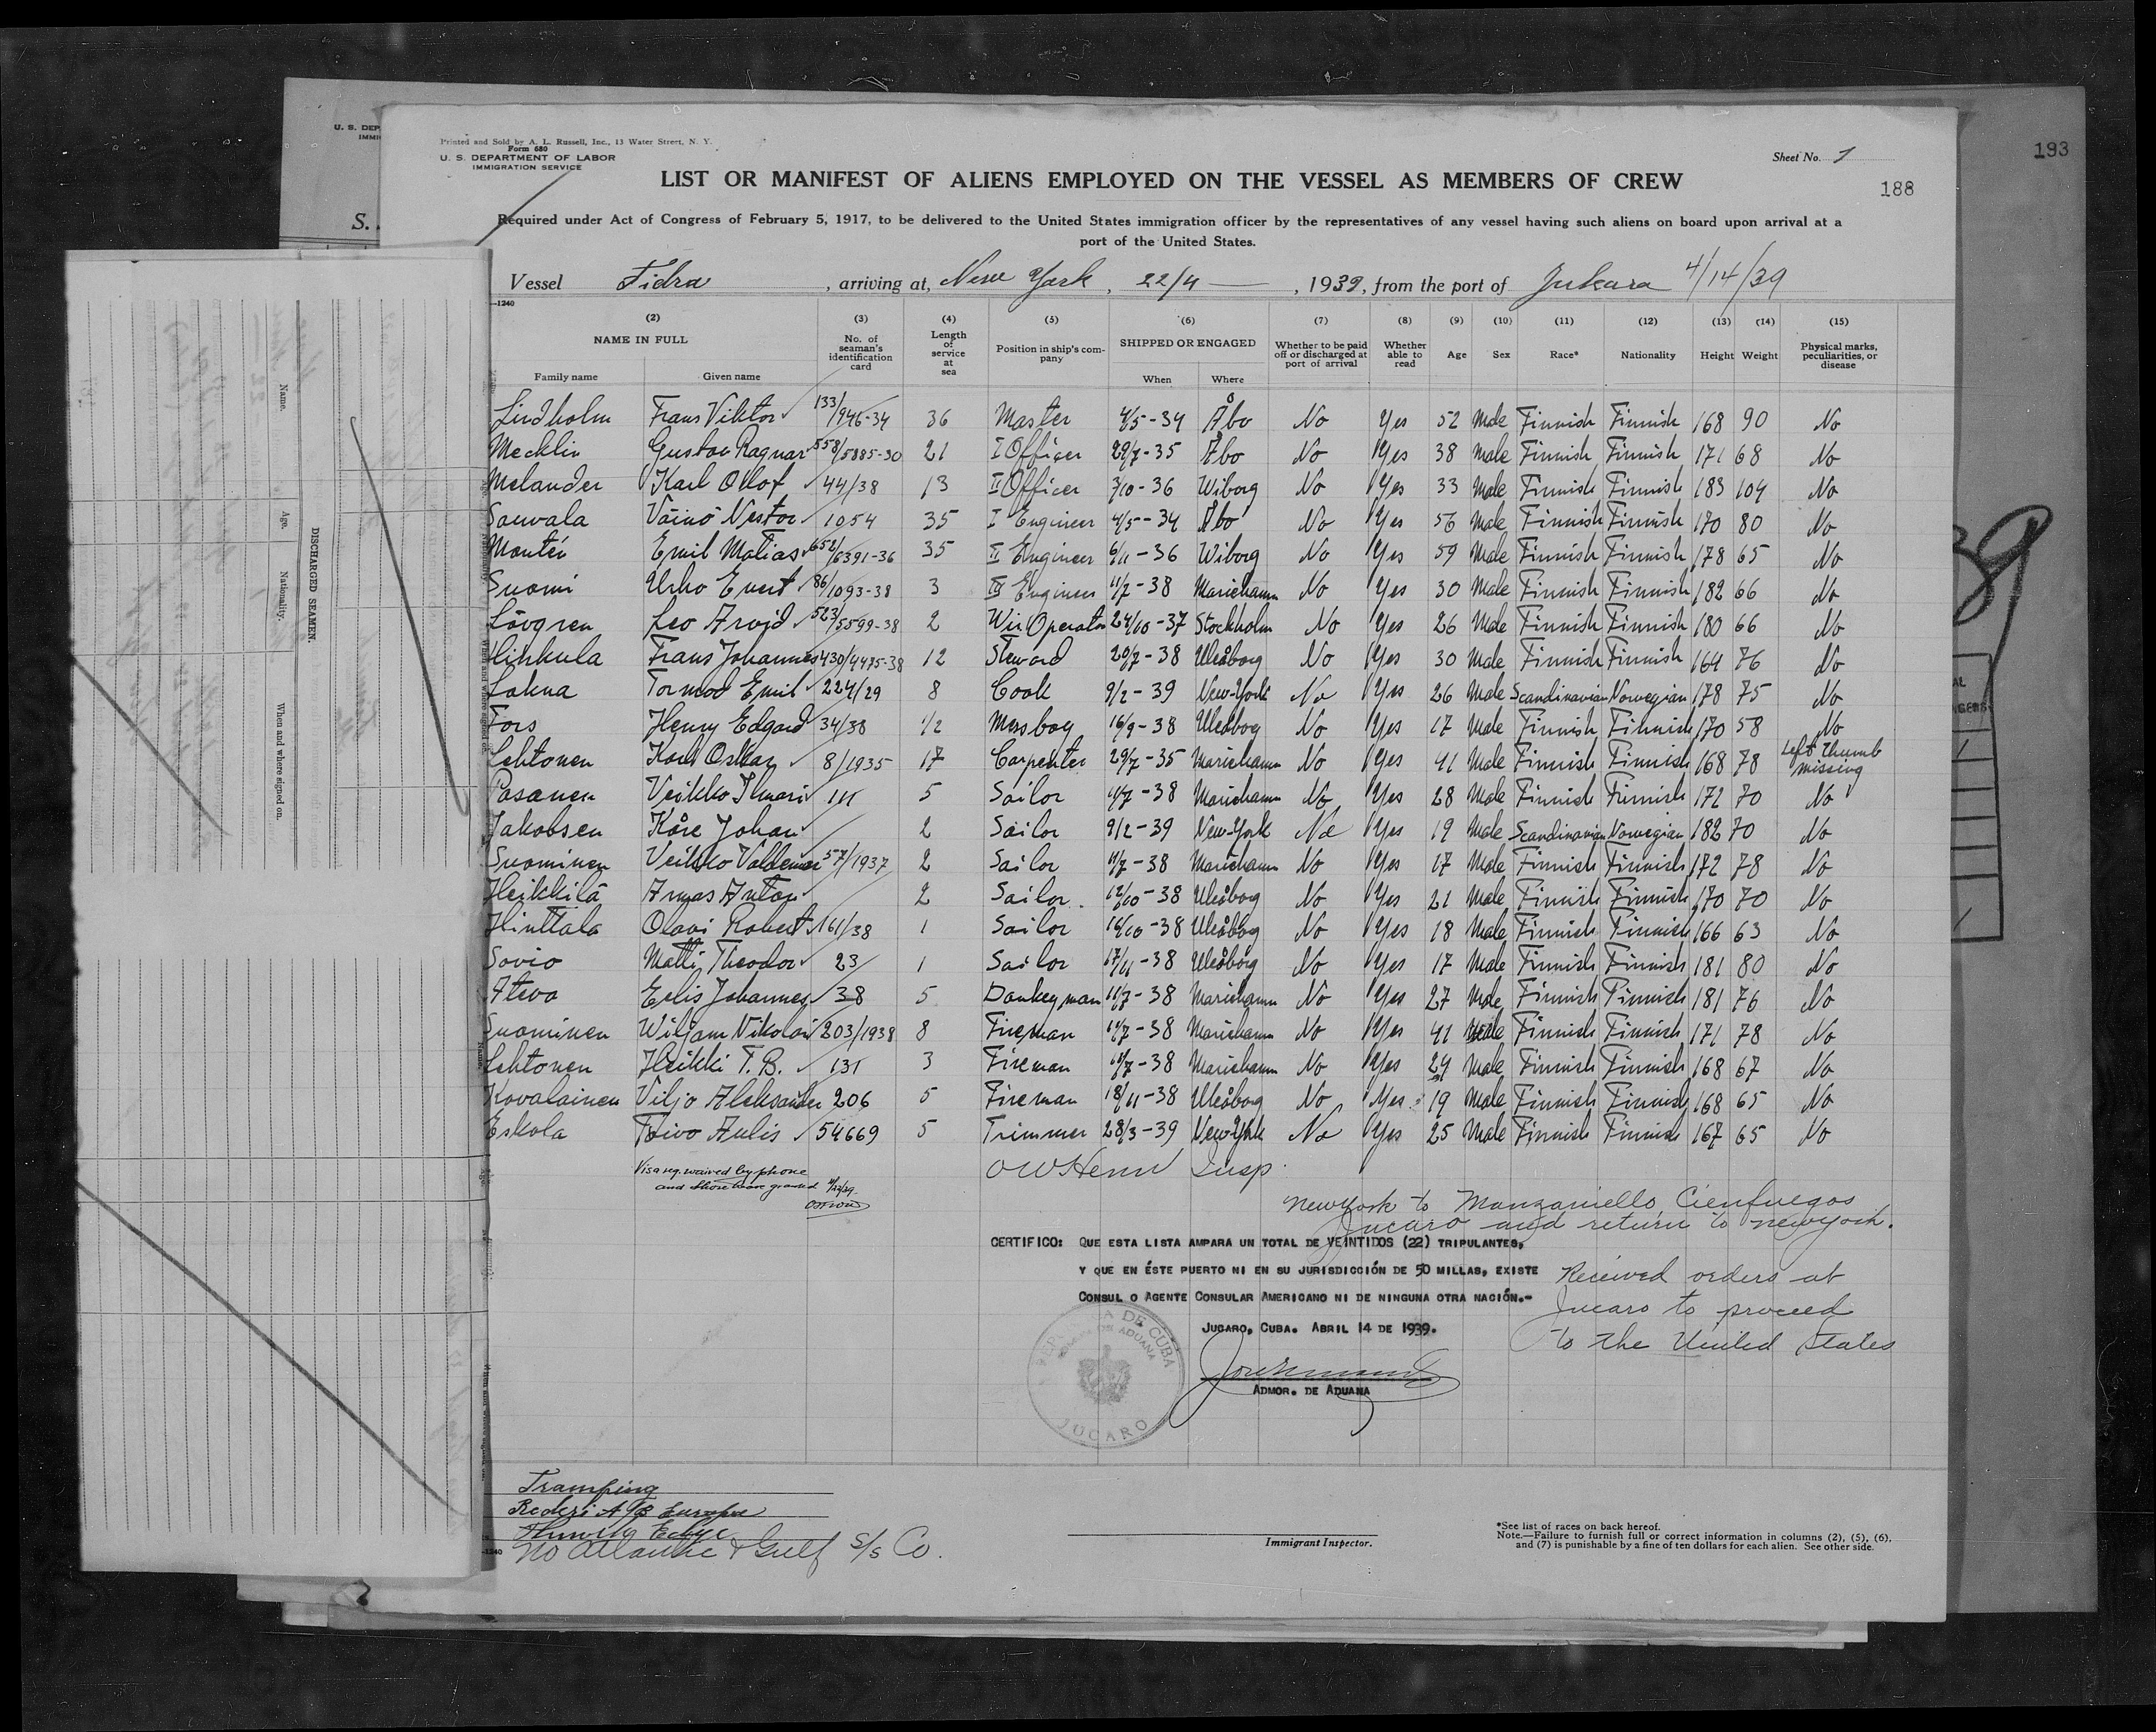 193
U. S. DEP
IMMI
S.
Printed and Sold by A. L. Russell, Inc., 13 Water Street, N. Y.
Form 680
U. S. DEPARTMENT OF LABOR
IMMIGRATION SERVICE
Sheet No. 1
188
LIST OR MANIFEST OF ALIENS EMPLOYED ON THE VESSEL AS MEMBERS OF CREW
Required under Act of Congress of February 5, 1917, to be delivered to the United States immigration officer by the representatives of any vessel having such aliens on board upon arrival at a
port of the United States.
Vessel Fidra, arriving at, New York, 22/4, 1939, from the port of Jukara 4/14/39
1240
(2) (3) (4) (5) (6) (7) (8) (9) (10) (11) (12) (13) (14) (15)
NAME IN FULL
Family name Given name
No. of seaman's identification card
Length of service at sea
Position in ship's company
SHIPPED OR ENGAGED
When Where
Whether to be paid off or discharged at port of arrival
Whether able to read
Age Sex Race* Nationality Height Weight
Physical marks, peculiarities, or disease
Lindholm Frans Viktor 133/946-34 36 Master 4/5-34 Åbo No Yes 52 Male Finnish Finnish 168 90 No
Mecklin Gustav Ragnar 558/5885-30 21 I Officer 29/7-35 Åbo No Yes 38 Male Finnish Finnish 171 68 No
Melander Karl Ollof 44/38 13 II Officer 3/10-36 Wiborg No Yes 33 Male Finnish Finnish 183 104 No
Saewala Väinö Nestor 1054 35 I Engineer 4/5-34 Åbo No Yes 56 Male Finnish Finnish 170 80 No
Montén Emil Matias 652/6391-36 35 II Engineer 6/11-36 Wiborg No Yes 59 Male Finnish Finnish 178 65 No
Suomi Urho Evert 86/1093-38 3 III Engineer 11/7-38 Mariehamn No Yes 30 Male Finnish Finnish 182 66 No
Lövgren Leo Arvid 523/5599-38 2 Wir Operator 24/10-37 Stockholm No Yes 26 Male Finnish Finnish 180 66 No
Hinkula Frans Johannes 430/4475-38 12 Steward 20/7-38 Uleåborg No Yes 30 Male Finnish Finnish 164 76 No
Lokna Tormod Emil 224/29 8 Cook 9/2-39 New-York No Yes 26 Male Scandinavian Norwegian 178 75 No
Fors Henry Edgard 34/38 1/2 Messboy 16/9-38 Uleåborg No Yes 17 Male Finnish Finnish 170 58 No
Lehtonen Karl Oskar 8/1935 17 Carpenter 29/7-35 Mariehamn No Yes 41 Male Finnish Finnish 168 78 Left Thumb missing
Pasanen Veikko Ilmari 111 5 Sailor 11/7-38 Mariehamn No Yes 28 Male Finnish Finnish 172 70 No
Jakobsen Kåre Johan 2 Sailor 9/2-39 New-York No Yes 19 Male Scandinavian Norwegian 182 70 No
Suominen Veikko Valdemar 57/1937 2 Sailor 11/7-38 Mariehamn No Yes 17 Male Finnish Finnish 172 78 No
Heikkilä Armas Anton 2 Sailor 12/10-38 Uleåborg No Yes 21 Male Finnish Finnish 170 70 No
Hinttala Olavi Robert 161/38 1 Sailor 16/10-38 Uleåborg No Yes 18 Male Finnish Finnish 166 63 No
Sovio Matti Theodor 23 1 Sailor 17/11-38 Uleåborg No Yes 17 Male Finnish Finnish 181 80 No
Ateva Eelis Johannes 38 5 Donkeyman 11/7-38 Mariehamn No Yes 27 Male Finnish Finnish 181 76 No
Suominen Wiljam Nikolai 203/1938 8 Fireman 11/7-38 Mariehamn No Yes 41 Male Finnish Finnish 171 78 No
Lehtonen Heikki T. B. 131 3 Fireman 11/7-38 Mariehamn No Yes 24 Male Finnish Finnish 168 67 No
Kovalainen Viljo Aleksander 206 5 Fireman 18/11-38 Uleåborg No Yes 19 Male Finnish Finnish 168 65 No
Eskola Toivo Aulis 54669 5 Trimmer 28/3-39 New-York No Yes 25 Male Finnish Finnish 167 65 No
Visa reg. waived by phone
and shore leave granted 4/22/39
OWHenn Insp.
New York to Manzaniello, Cienfuegos
Jucaro and return to New york.
CERTIFICO: QUE ESTA LISTA AMPARA UN TOTAL DE VEINTIDOS (22) TRIPULANTES,
Y QUE EN ÉSTE PUERTO NI EN SU JURISDICCIÓN DE 50 MILLAS, EXISTE
CONSUL O AGENTE CONSULAR AMERICANO NI DE NINGUNA OTRA NACIÓN.-
JUCARO, CUBA. ABRIL 14 DE 1939.
ADMOR. DE ADUANA
Received orders at
Jucaro to proceed
to the United States
REPUBLICA DE CUBA
ADUANA
JUCARO
Tramping
Rederi A/B Europa
No Atlantic & Gulf S/S Co.
1240
Immigrant Inspector.
*See list of races on back hereof.
Note.—Failure to furnish full or correct information in columns (2), (5), (6),
and (7) is punishable by a fine of ten dollars for each alien. See other side.
DISCHARGED SEAMEN.
Name.
Age.
Nationality.
When and where signed on.
39